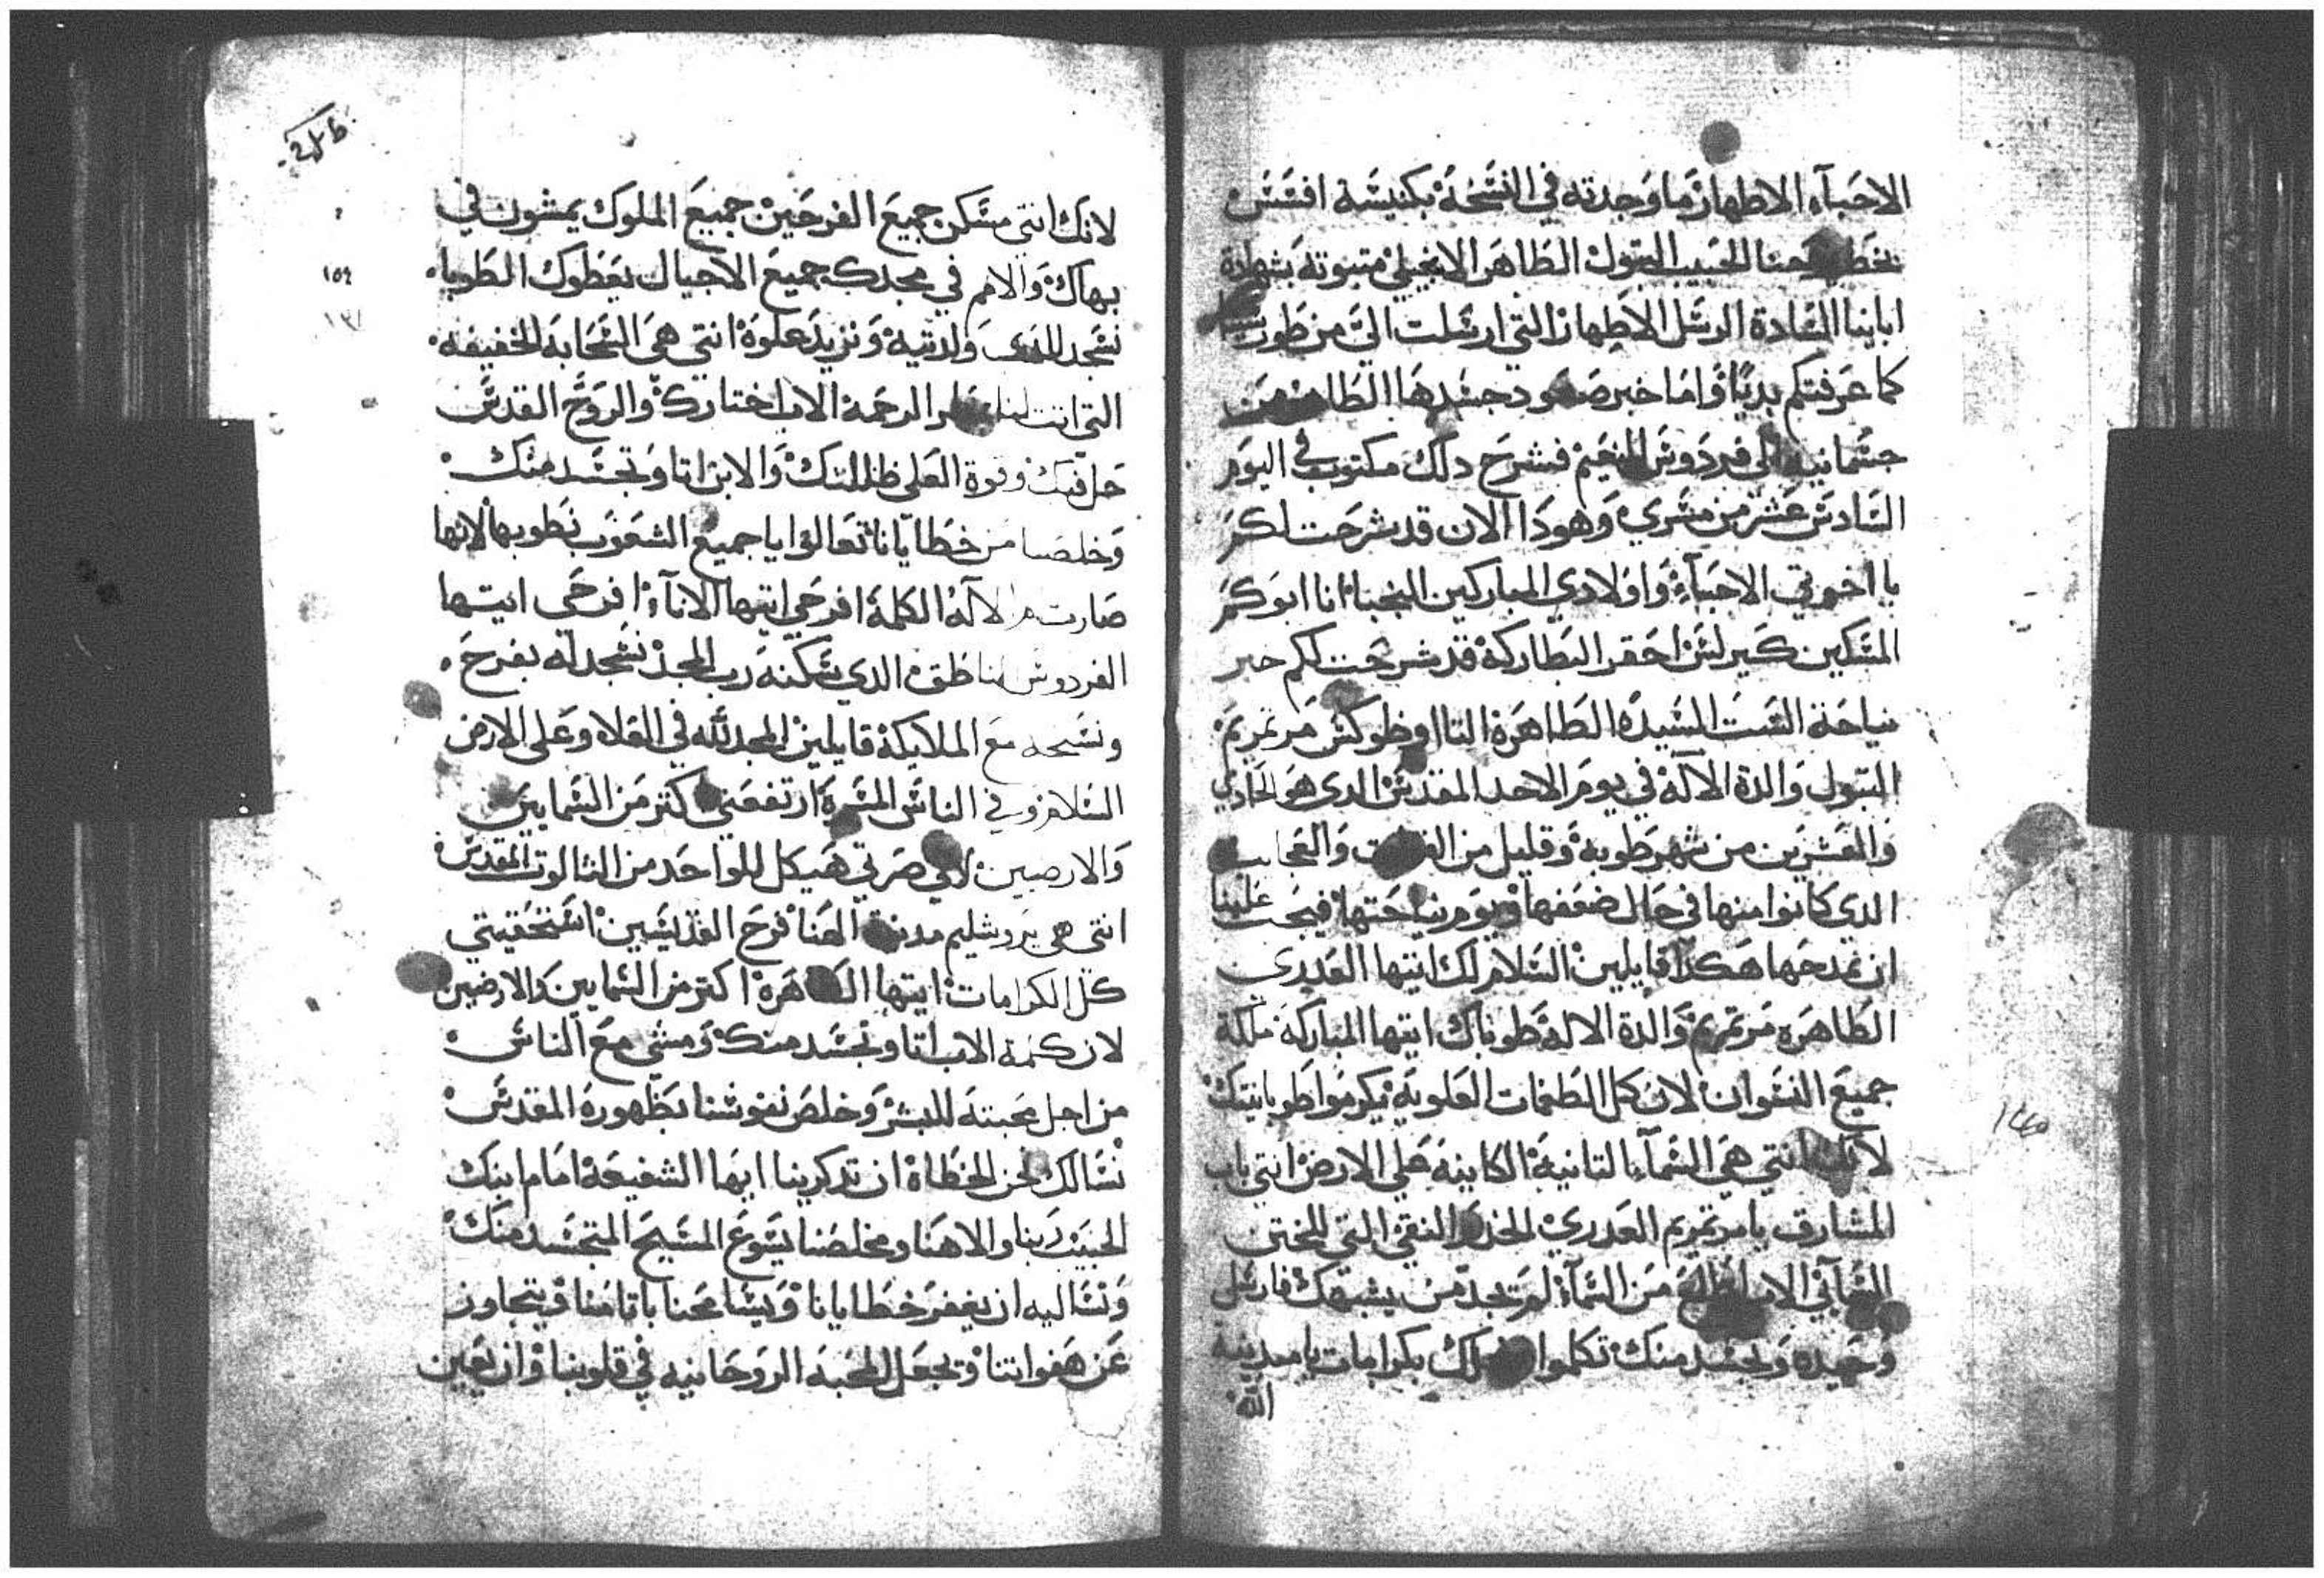 الاحباء الاطهار ما وجدته في النسخة بكنيسة افسس
بخط يوحنا الحبيب البتول الطاهر الانجيلي متبوته بشهادة
ابابنا السادة الرسل الاطهار التي ارسلت الي من طور سينا
كما عرفتكم بديا واما خبر صعود جسدها الطاهر من
جتسمانيه الي فردوس النعيم فشرح دلك مكتوب في اليوم
السادس عشر من مسري وهودا الان قد شرحت لكم
يا اخوتي الاحباء واولادي المباركين النجبا انا ابوكم
المسكين كيرلس احقر البطاركة قد شرحت لكم خبر
نياحة الست السيده الطاهرة التااوضوكس مرتمريم
البتول والدة الاله في يوم الاحد المقدس الدي هو الحادي
والعشرين من شهر طوبه وقليل من القوات والعجايب
الدي كانوا منها في حال ضعفها ويوم نياحتها فيجب علينا
ان نمدحها هكدا قايلين السلام لك ايتها العدري
الطاهره مرتمريم والدة الاله طوباك ايتها المباركة ملكة
جميع النسوان لان كل الطغمات العلويه يكرموا طوبانيتك
لانك انتي هي السماء التانية الكاينة علي الارض انتي باب
المشارق يا مرتمريم العدري الخدر النقي التي للختن
السمائي الاب اطلع من السماء لم تجد من يشبهك فارسل
وحيده وتجسد منك تكلموا لاجلك بكرامات يا مدينة
الله
لانك انتي مسكن جميع الفرحين جميع الملوك يمشون في
بهاك والامم في مجدك جميع الاجيال يعطوك الطوبا
نسجد للدي ولدتيه ونزيد علوه انتي هي السحابة الخفيفه
التي اتت لنا بمطر الرحمة الاب اختارك والروح القدس
حل فيك وقوة العلي ظللتك والابن اتا وتجسد منك
وخلصنا من خطايانا تعالوا يا جميع الشعوب نطوبها لانها
صارت ام الاله الكلمة افرحي ايتها الاناء افرحي ايتها
الفردوس الناطق الدي سكنه رب المجد نسجد له بفرح
ونسبحه مع الملايكة قايلين المجد لله في العلا وعلى الارض
السلام وفي الناس المسرة ارتفعتي اكتر من السمايين
والارضيين لانك صرتي هيكل للواحد من التالوت المقدس
انتي هي يروشليم مدينة الهنا فرح القديسين استحقيتي
كل الكرامات ايتها الطاهرة اكتر من السمايين والارضيين
لان كلمة الاب اتا وتجسد منك ومشي مع الناس
من اجل محبته للبشر وخلص نفوسنا بظهوره المقدس
نسالك نحن الخطاة ان تدكرينا ايها الشفيعة امام ابنك
الحبيب ربنا والاهنا ومخلصنا يسوع المسيح المتجسد منك
وتساليه ان يغفر خطايانا ويسامحنا باتامنا ويتجاوز
عن هفواتنا وتجعل المحبة الروحانيه في قلوبنا وان يعين